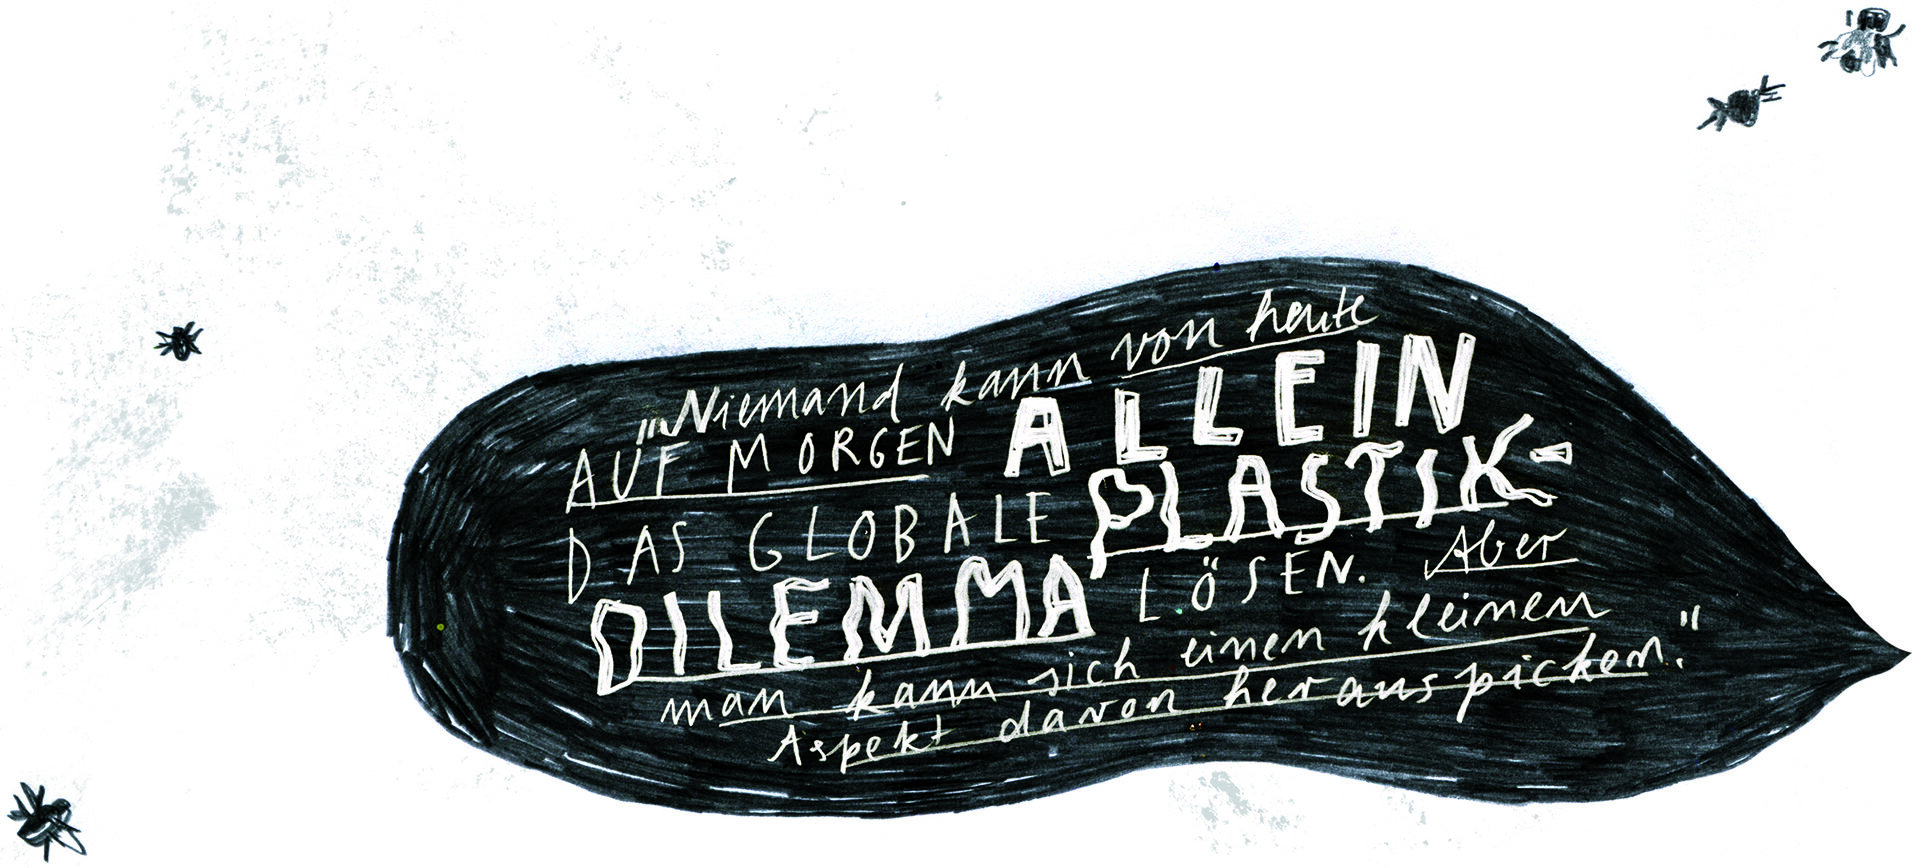 „Niemand kann von heute
AUF MORGEN ALLEIN
DAS GLOBALE PLASTIK-
DILEMMA LÖSEN. Aber
man kann sich einen kleinen
Aspekt davon herauspicken."